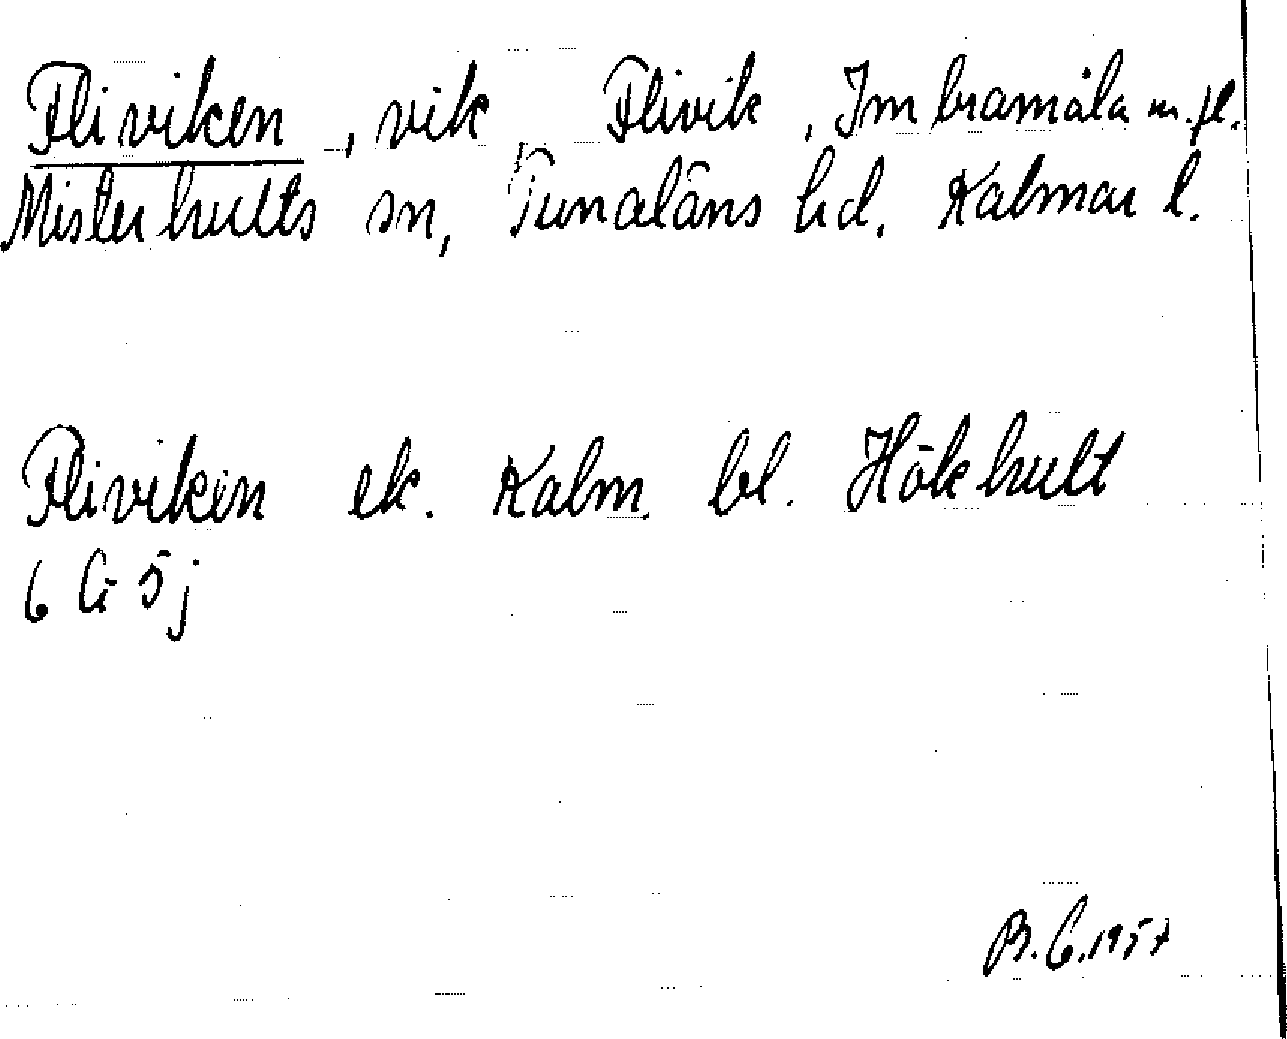 Fliviken, vik, Flivik, Imbramåla m.fl.
Misterhults sn, Tunaläns hd, Kalmar l.
Fliviken ek. Kalm. bl. Hökhult
6 G 5j
B.G. 1957